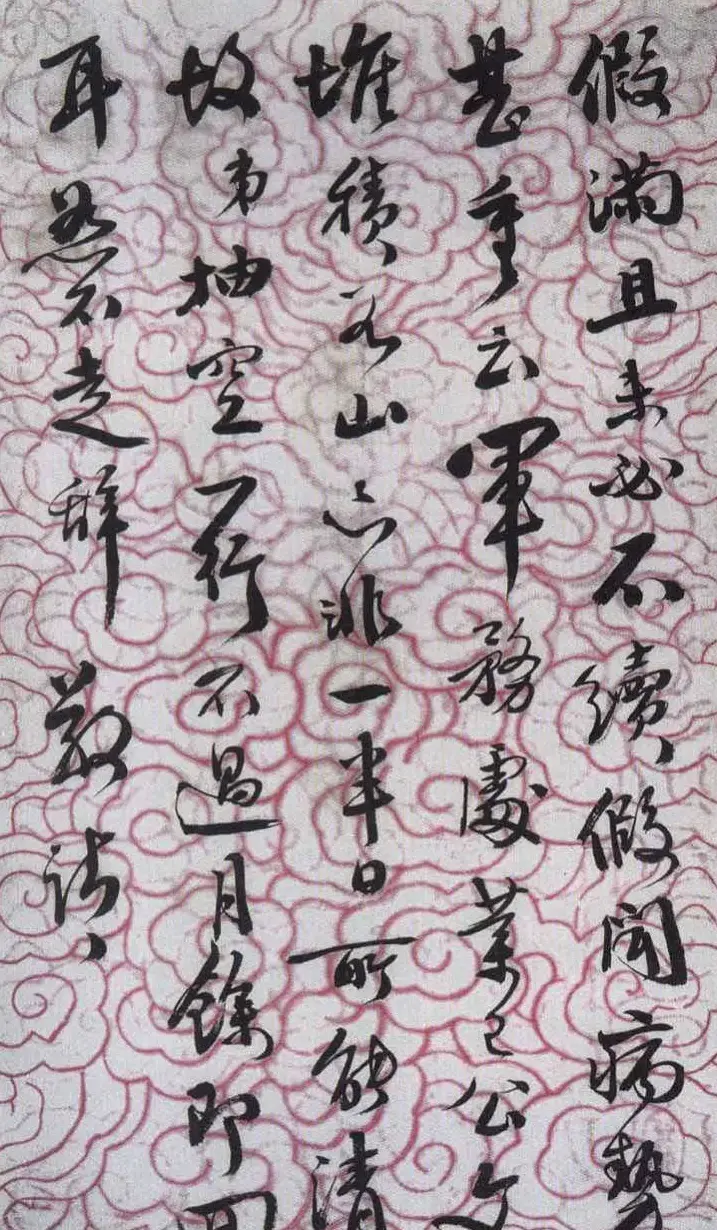 假滿且未必不續假聞病勢
甚重云軍務處業已公文
堆積如山亦非一半日所能清
故弟抽空一行不過月餘即回
耳恕不走辭　敬請